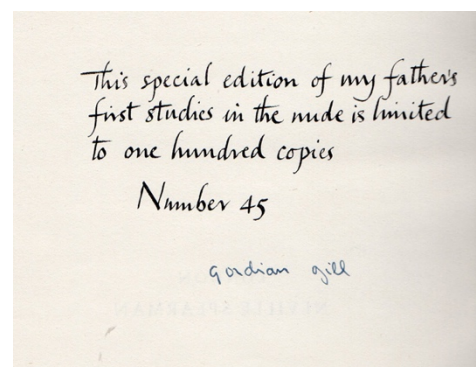 This special edition of my father's
first studies in the nude is limited
to one hundred copies
Number 45
gordian gill
NEVILLE SPEARMAN